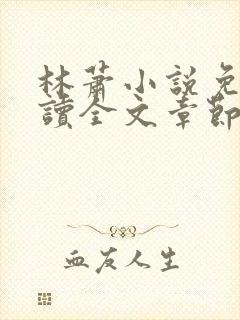 林蕭小說免
讀全文章節
血友人生